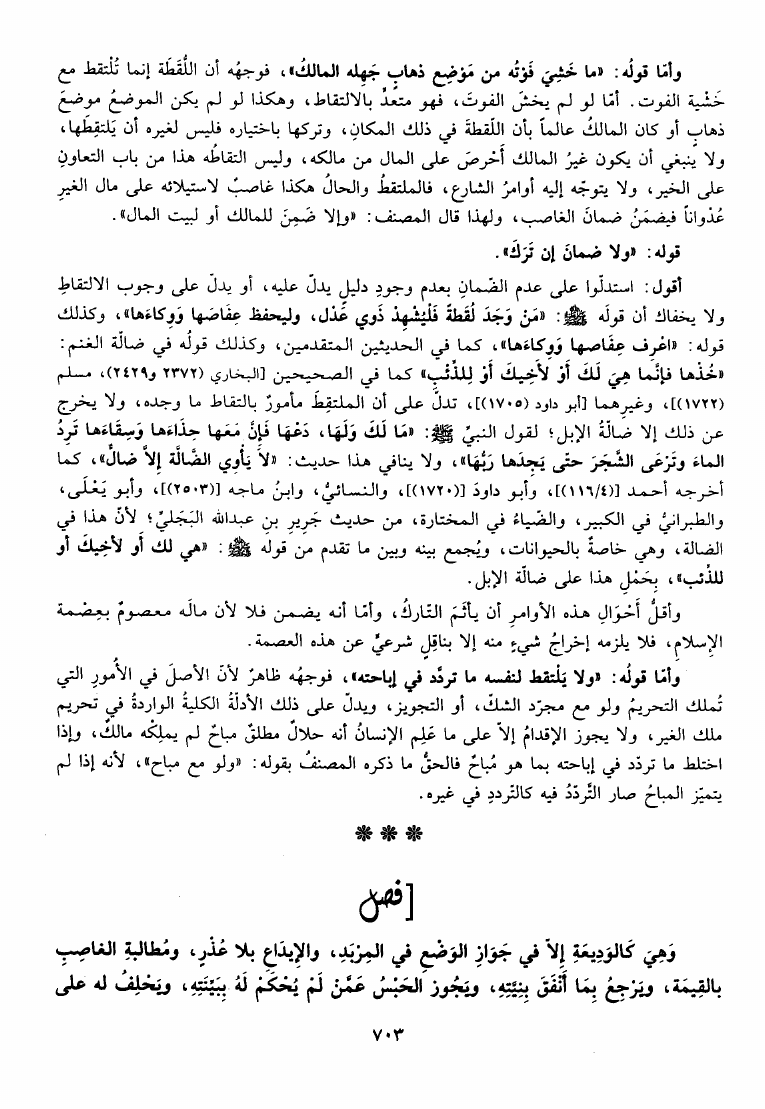 وأمّا قولُه: «ما خَشِيَ فَوْتُه من مَوْضِع ذهابٍ جَهِله المالكُ»، فوجهُه أن اللُّقَطَة إنما تُلْتقط مع
خَشْية الفوت. أمّا لو لم يخشَ الفوتَ، فهو متعدٍّ بالالتقاط، وهكذا لو لم يكن الموضعُ موضعَ
ذهابٍ أو كان المالكُ عالماً بأن اللّقطةَ في ذلك المكانِ، وتركها باختياره فليس لغيره أن يَلتقِطَها،
ولا ينبغي أن يكون غيرُ المالك أَحْرصَ على المال من مالكه، وليس التقاطُه هذا من باب التعاونِ
على الخير، ولا يتوجّه إليه أوامرُ الشارع، فالملتقطُ والحالُ هكذا غاصبٌ لاستيلائه على مال الغيرِ
عُدْواناً فيضمَنُ ضمانَ الغاصب، ولهذا قال المصنف: «وإلا ضَمِنَ للمالك أو لبيت المال».
قوله: «ولا ضمانَ إن تَرَكَ».
أقول: استدلّوا على عدم الضّمانِ بعدم وجودِ دليلٍ يدلّ عليه، أو يدلّ على وجوب الالتقاطِ
ولا يخفاك أن قولَه ﷺ: «مَنْ وَجَدَ لُقَطةً فَلْيُشْهِدْ ذَوي عَدْل، وليحفظ عِفَاصَها وَوِكاءَها»، وكذلك
قوله: «اعْرِف عِفَاصها وَوِكاءَها»، كما في الحديثين المتقدمين، وكذلك قولُه في ضالّة الغنم:
«خُذْها فإنَّما هِيَ لَكَ أَوْ لأَخِيكَ أَوْ لِلذِّئْبِ» كما في الصحيحين [البخاري (٢٣٧٢ و٢٤٢٩)، مسلم
(١٧٢٢)]، وغيرِهما [أبو داود (١٧٠٥)]، تدلّ على أن الملتقِطَ مأمورٌ بالتقاط ما وجده، ولا يخرج
عن ذلك إلا ضالّةُ الإبل؛ لقول النبيّ ﷺ: «مَا لَكَ وَلَهَا، دَعْهَا فَإنَّ مَعَها حِذَاءَها وَسِقَاءَها تَرِدُ
الماءَ وتَرْعَى الشَّجَرَ حتَّى يَجِدَها رَبُّهَا»، ولا ينافي هذا حديث: «لاَ يَأْوِي الضَّالَّةَ إلاَّ ضالٌّ»، كما
أخرجه أحمد [(١١٦/٤)]، وأبو داودَ [(١٧٢٠)]، والنسائيُّ، وابنُ ماجه [(٢٥٠٣)]، وأبو يَعْلَى،
والطبرانيُّ في الكبير، والضّياءُ في المختارة، من حديث جَرِيرِ بنِ عبدالله البَجَليِّ؛ لأنّ هذا في
الضالة، وهي خاصةٌ بالحيوانات، ويُجمع بينه وبين ما تقدم من قوله ﷺ: «هي لك أو لأخِيكَ أو
للذِّئب»، بِحَمْلِ هذا على ضالّة الإبل.
وأقلُّ أَحْوَالِ هذه الأوامرِ أن يأثَمَ التّاركُ، وأمّا أنه يضمن فلا لأن مالَه معصومٌ بعِصْمة
الإسلامِ، فلا يلزمه إخراجُ شيءٍ منه إلا بناقِلٍ شرعيٍّ عن هذه العصمة.
وأمّا قولُه: «ولا يَلْتقط لنفسه ما تردَّد في إباحته»، فوجهُه ظاهرٌ لأنّ الأصلَ في الأُمورِ التي
تُملك التحريمُ ولو مع مجرّد الشكّ، أو التجويز، ويدلّ على ذلك الأدلّةُ الكليةُ الواردةُ في تحريم
ملك الغير، ولا يجوز الإقدامُ إلاّ على ما عَلِم الإنسانُ أنه حلالٌ مطلقٌ مباحٌ لم يملِكْه مالكٌ، وإذا
اختلط ما تردّد في إباحته بما هو مُباحٌ فالحقُّ ما ذكره المصنفُ بقوله: «ولو مع مباح»، لأنه إذا لم
يتميّز المباحُ صار التَّردّدُ فيه كالتّرددِ في غيره.
❋ ❋ ❋
[فصل
وَهِيَ كَالوَدِيعَةِ إلاّ في جَوَازِ الوَضْعِ في المِرْبَدِ، والإيدَاعِ بلا عُذْرٍ، ومُطالبةِ الغاصِبِ
بالقِيمَة، ويَرْجِعُ بِمَا أَنْفَقَ بِنِيَّتِهِ، ويَجُوز الحَبْسُ عَمَّنْ لَمْ يُحْكَمْ لَهُ بِبَيِّنَتِهِ، ويَحْلِفُ له على
٧٠٣